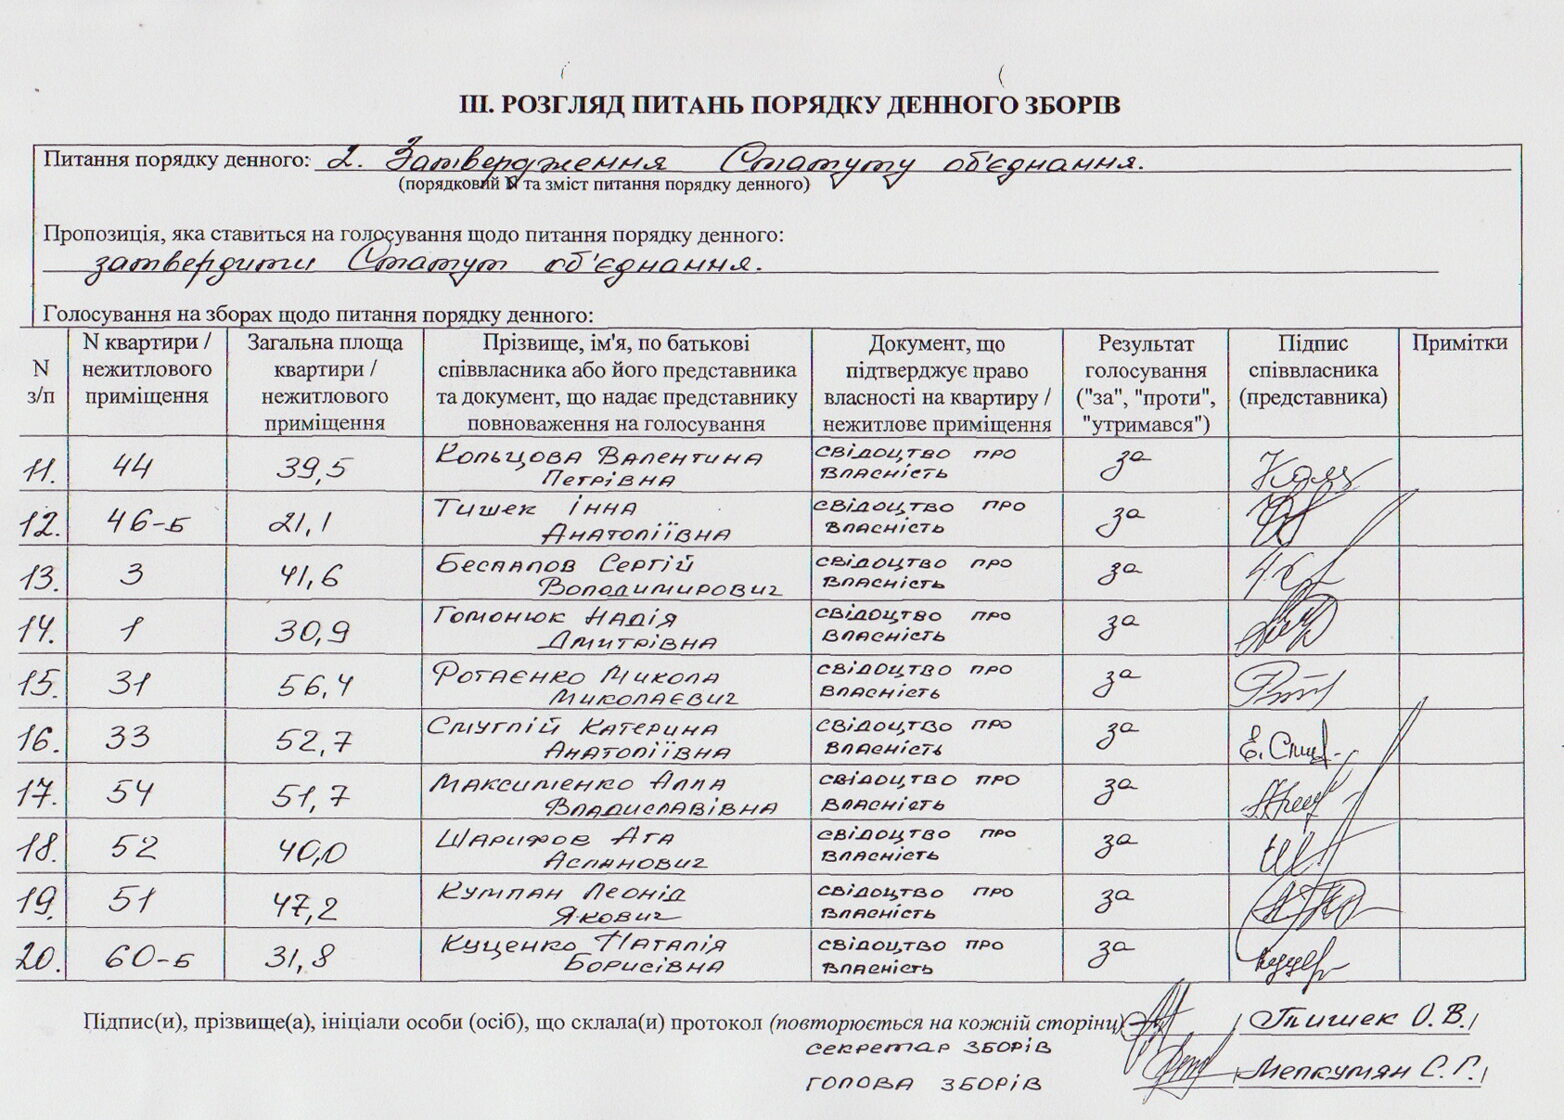 III. РОЗГЛЯД ПИТАНЬ ПОРЯДКУ ДЕННОГО ЗБОРІВ
Питання порядку денного: 2. Затвердження Статуту об'єднання.
(порядковий N та зміст питання порядку денного)
Пропозиція, яка ставиться на голосування щодо питання порядку денного:
затвердити Статут об'єднання.
Голосування на зборах щодо питання порядку денного:
N з/п | N квартири / нежитлового приміщення | Загальна площа квартири / нежитлового приміщення | Прізвище, ім'я, по батькові співвласника або його представника та документ, що надає представнику повноваження на голосування | Документ, що підтверджує право власності на квартиру / нежитлове приміщення | Результат голосування ("за", "проти", "утримався") | Підпис співвласника (представника) | Примітки
11. 44 39,5 Кольцова Валентина Петрівна свідоцтво про власність за
12. 46-Б 21,1 Тишек Інна Анатоліївна свідоцтво про власність за
13. 3 41,6 Беспалов Сергій Володимирович свідоцтво про власність за
14. 1 30,9 Гомонюк Надія Дмитрівна свідоцтво про власність за
15. 31 56,4 Ротаєнко Микола Миколаєвич свідоцтво про власність за
16. 33 52,7 Смуглій Катерина Анатоліївна свідоцтво про власність за
17. 54 51,7 Максименко Алла Владиславівна свідоцтво про власність за
18. 52 40,0 Шарифов Ага Аспанович свідоцтво про власність за
19. 51 47,2 Кумпан Леонід Якович свідоцтво про власність за
20. 60-Б 31,8 Куценко Наталія Борисівна свідоцтво про власність за
Підпис(и), прізвище(а), ініціали особи (осіб), що склала(и) протокол (повторюється на кожній сторінці) / Тишек О.В. /
секретар зборів
голова зборів / Мелкумян С.Г. /